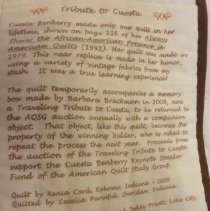 Tribute to Cuesta
Cuesta Benberry made only one quilt in her
lifetime, shown on page 116 of her Always
There: the African-American Presence in
American Quilts (1992). Her quilt was made in
1979. This near replica is made in her honor,
using a variety of vintage fabrics from my
stash. It was a true learning experience!
The quilt temporarily accompanies a memory
box made by Barbara Brackman in 2008, now
a Traveling Tribute to Cuesta, to be returned to
the AQSG auction annually with a companion
object. That object, like this quilt, becomes the
property of the winning bidder, who is asked to
repeat the process the next year. Proceeds from
the auction of the Traveling Tribute to Cuesta
support the Cuesta Benberry Keynote Speaker
Fund of the American Quilt Study Group.
Quilt by Xenia Cord, Kokomo Indiana
Quilted by Cecelia Purciful, Sheridan, Indiana
Teddy Pruett, Lake City,